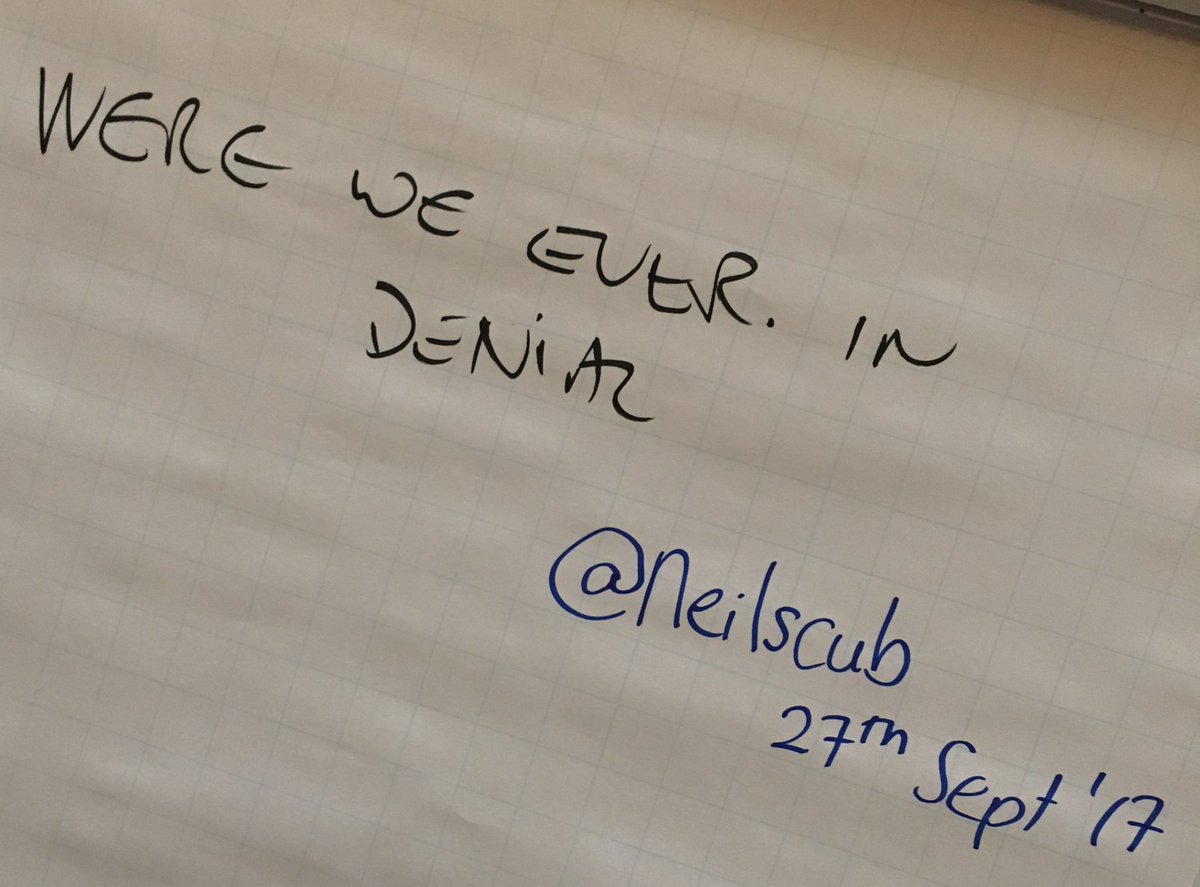 WERE WE EVER. IN
DENiAL
@neilscub
27th Sept '17